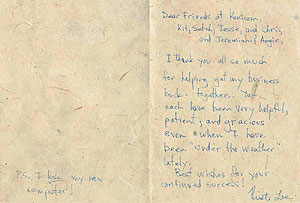 Dear Friends at
Kit, Satch, Jesse, and Chris
and Jeremiah & Angie,
I thank you all so much
for helping get my business
back together. You
each have been very helpful,
patient, and gracious
even when I have
been "under the weather"
lately.
Best wishes for your
continued success!
P.S. I love my new
computer!